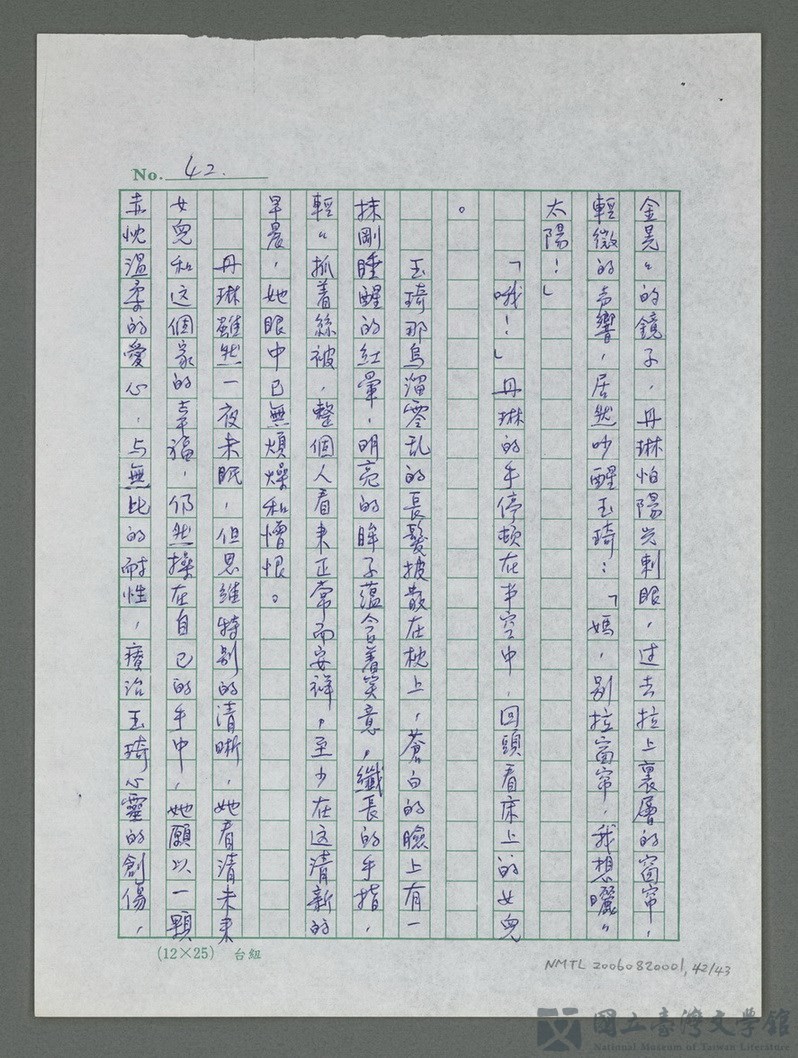 No. 42.
金晃〃的鏡子，丹琳怕陽光刺眼，过去拉上裏層的窗帘，
輕微的声響，居然吵醒玉琦：「媽，别拉窗帘，我想曬〃
太陽！」
「哦！」丹琳的手停頓在半空中，回頭看床上的女兒
。
玉琦那烏溜零乱的長髮披散在枕上，蒼白的臉上有一
抹剛睡醒的紅暈，明亮的眸子蕴含着笑意，纖長的手指，
輕〃抓着絲被，整個人看来正常而安祥，至少在这清新的
早晨，她眼中已無煩燥和憎恨。
丹琳雖然一夜未眠，但思維特别的清晰，她看清未来
女兒和这個家的幸福，仍然操在自己的手中，她願以一顆
赤忱溫柔的愛心，与無比的耐性，療治玉琦心靈的創傷，
(12×25) 台紐
NMTL 20060820001, 42/43
國立臺灣文學館
National Museum of Taiwan Literature